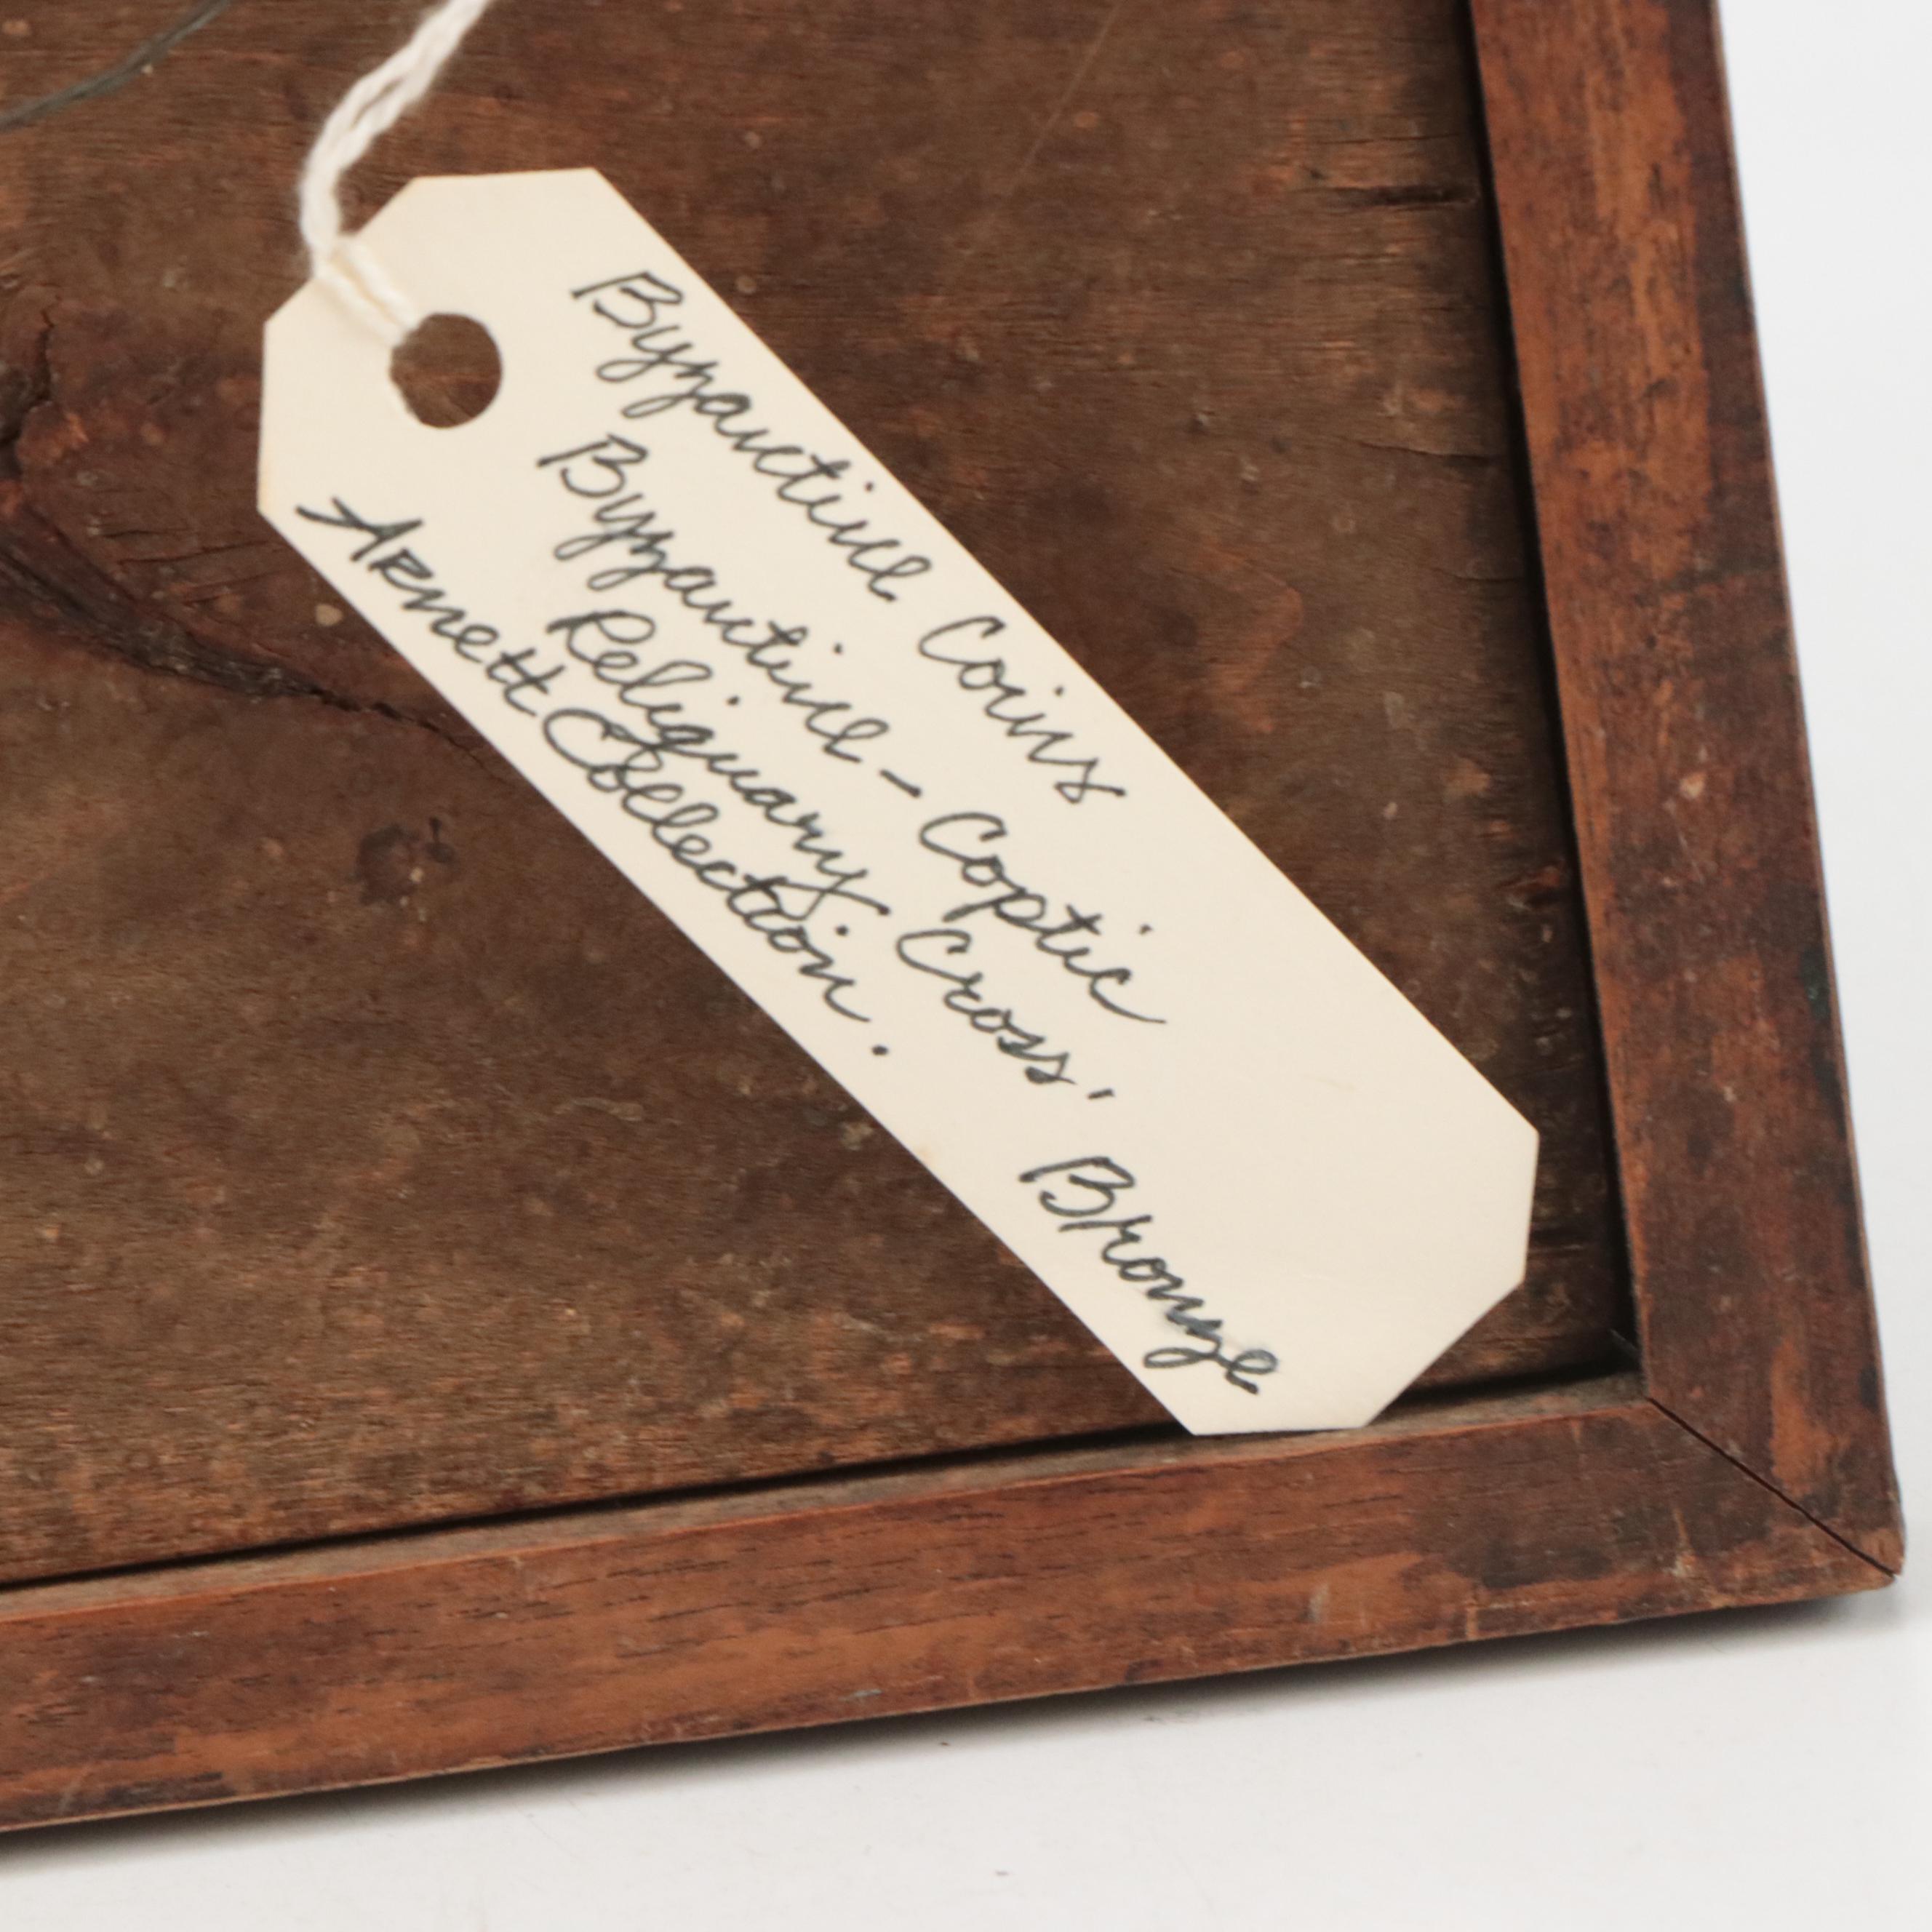 Byzantine Coins
Byzantine - Coptic
Reliquary Cross, Bronze
Arnett Collection.